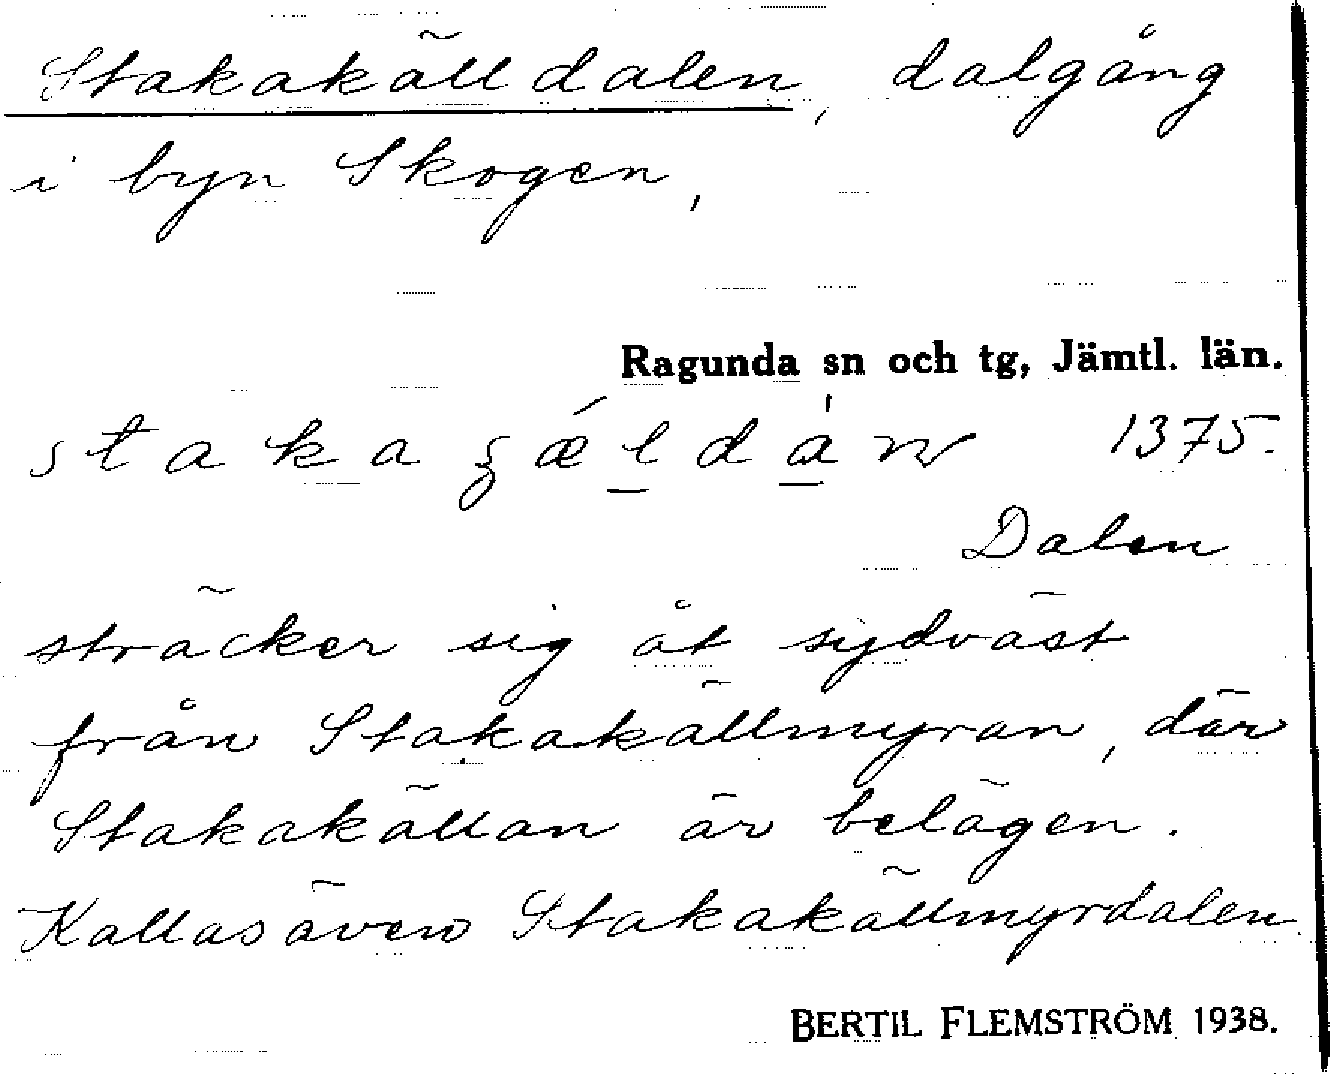 Stakakälldalen, dalgång
i byn Skogen,
Ragunda sn och tg, Jämtl. län.
1375.
Dalen
sträcker sig åt sydväst
från Stakakällmyran, där
Stakakällan är belägen.
Kallas även Stakakällmyrdalen.
BERTIL FLEMSTRÖM 1938.